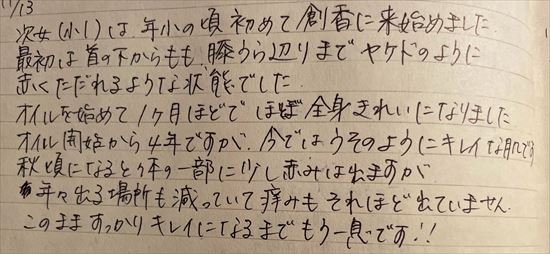 11/13
次女(小1)は年小の頃初めて創香に来始めました
最初は首の下からもも、膝うら辺りまでヤケドのように
赤くただれるような状態でした
オイルを始めて1ヶ月ほどでほぼ全身きれいになりました
オイル開始から4年ですが、今ではうそのようにキレイな肌です
秋頃になると体の一部に少し赤みは出ますが
年々出る場所も減っていて痒みもそれほど出ていません
このまますっかりキレイになるまでもう一息です!!